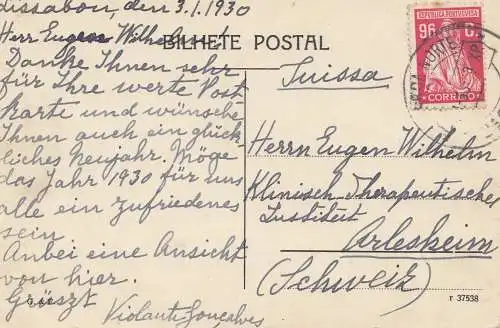 Lissabon, den 3.1.1930
Herr Eugen Wilhelm
Danke Ihnen sehr
für Ihre werte Post
karte und wünsche
Ihnen auch ein glück
liches Neujahr. Möge
das Jahr 1930 für uns
alle ein zufriedenes
sein
Anbei eine Ansicht
von hier.
Grüszt
Violante Gonçalves
BILHETE POSTAL
Suissa
REPUBLICA PORTUGUESA
96 C.
CORREIO
Herrn Eugen Wilhelm
Klinisch-Therapeutisches
Institeit
Arlesheim
(Schweiz)
r 37538